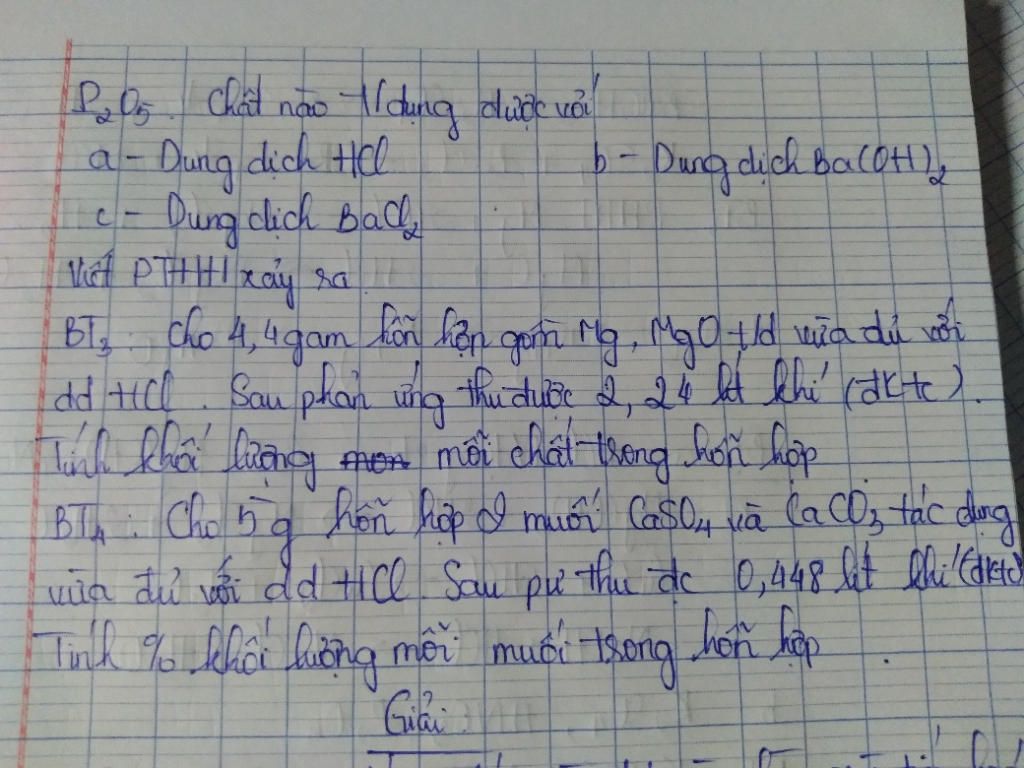 P₂O₅. Chất nào t/dụng được với
a - Dung dịch HCl b - Dung dịch Ba(OH)₂
c - Dung dịch BaCl₂
Viết PTHH xảy ra.
BT₃: Cho 4,4 gam hỗn hợp gồm Mg, MgO t/d vừa đủ với
dd HCl. Sau phản ứng thu được 2,24 lít khí (đktc).
Tính khối lượng mỗi chất trong hỗn hợp
BT₄: Cho 5g hỗn hợp 2 muối CaSO₄ và CaCO₃ tác dụng
vừa đủ với dd HCl. Sau pư thu đc 0,448 lít khí (đktc)
Tính % khối lượng mỗi muối trong hỗn hợp.
Giải.